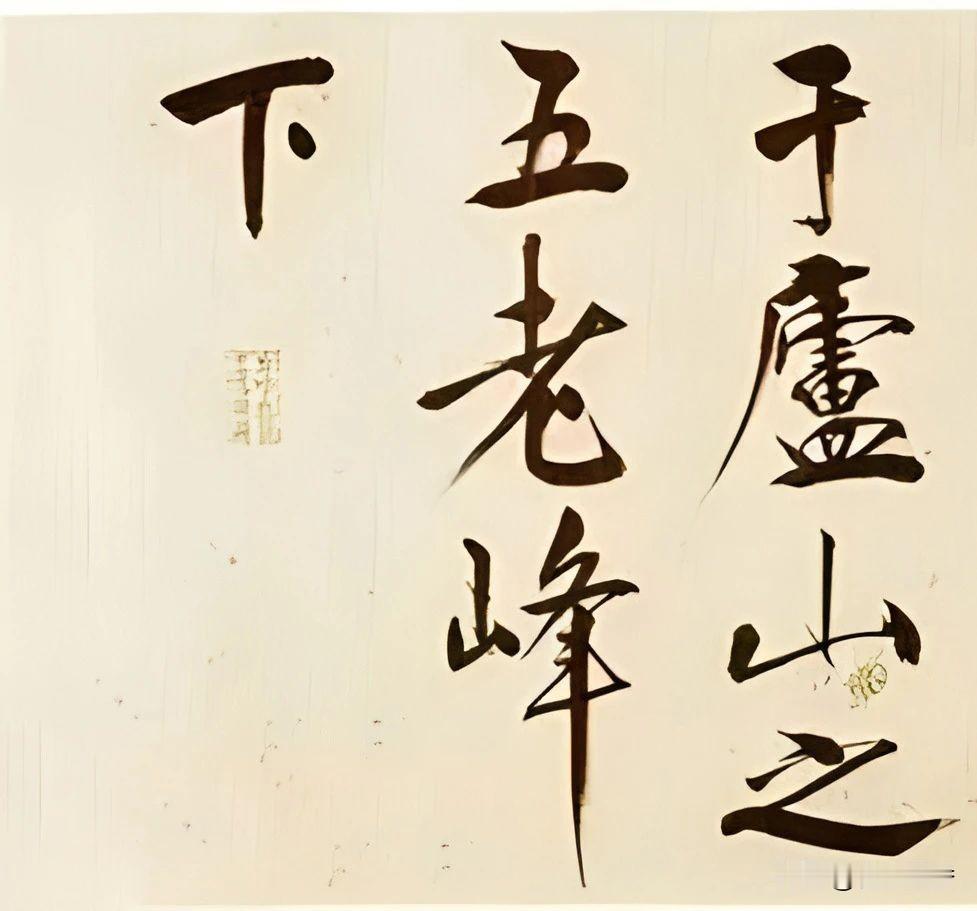 于廬山之
五老峰
下